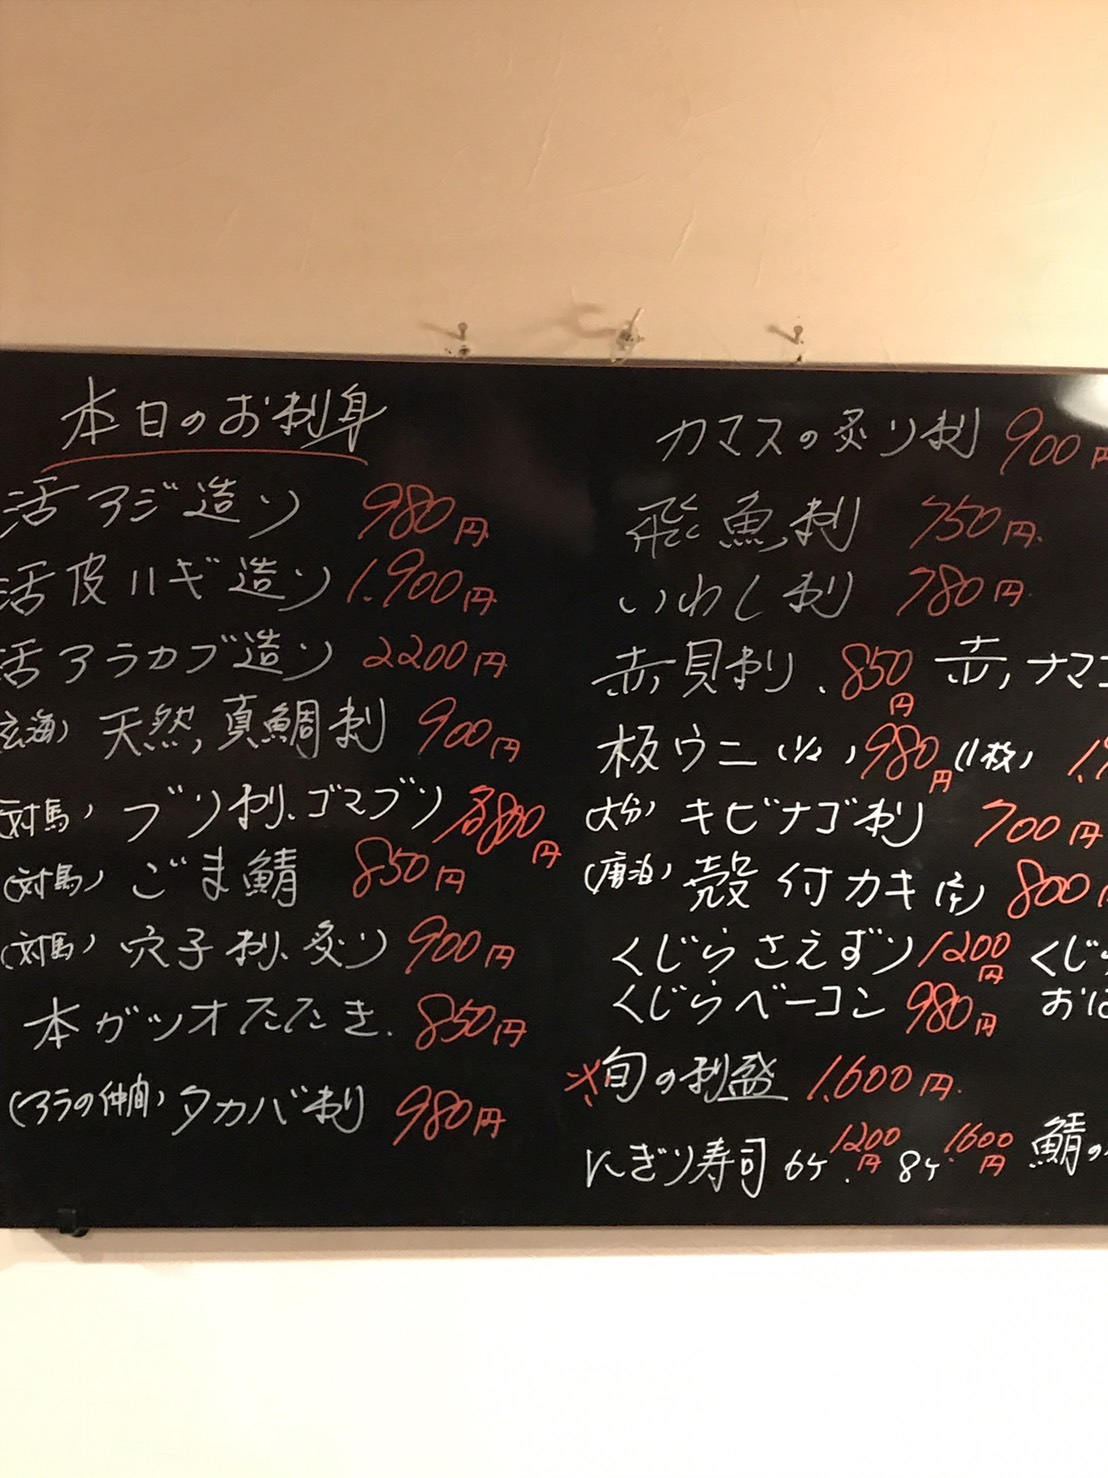 本日のお刺身
活アジ造り 980円
活皮ハギ造り 1.900円
活アラカブ造り 2200円
玄海) 天然真鯛刺 900円
対馬) ブリ刺、ゴマブリ 各800円
(対馬) ごま鯖 850円
(対馬) 穴子刺、炙り 900円
本ガツオたたき 850円
(アラの仲間) タカバ刺 980円
カマスの炙り刺 900円
飛魚刺 750円
いわし刺 780円
赤貝刺 850円 赤ナマコ
板ウニ (1/2) 980円 (1枚)
大分) キビナゴ刺 700円
(唐泊) 殻付カキ 800円
くじらさえずり 1200円 くじら
くじらベーコン 980円 おば
※旬の刺盛 1.600円
にぎり寿司 6ケ 1200円 8ケ 1.600円 鯖の